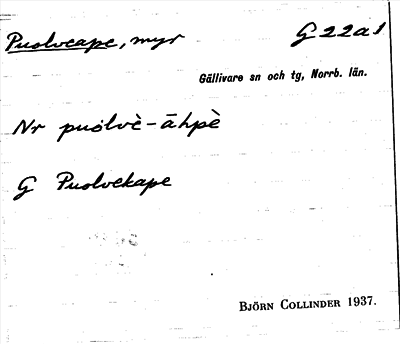 Puolveape, myr G 22 a 1
Gällivare sn och tg, Norrb. län.
Nr puo̊lvè-āhpè
G Puolvekape
BJÖRN COLLINDER 1937.